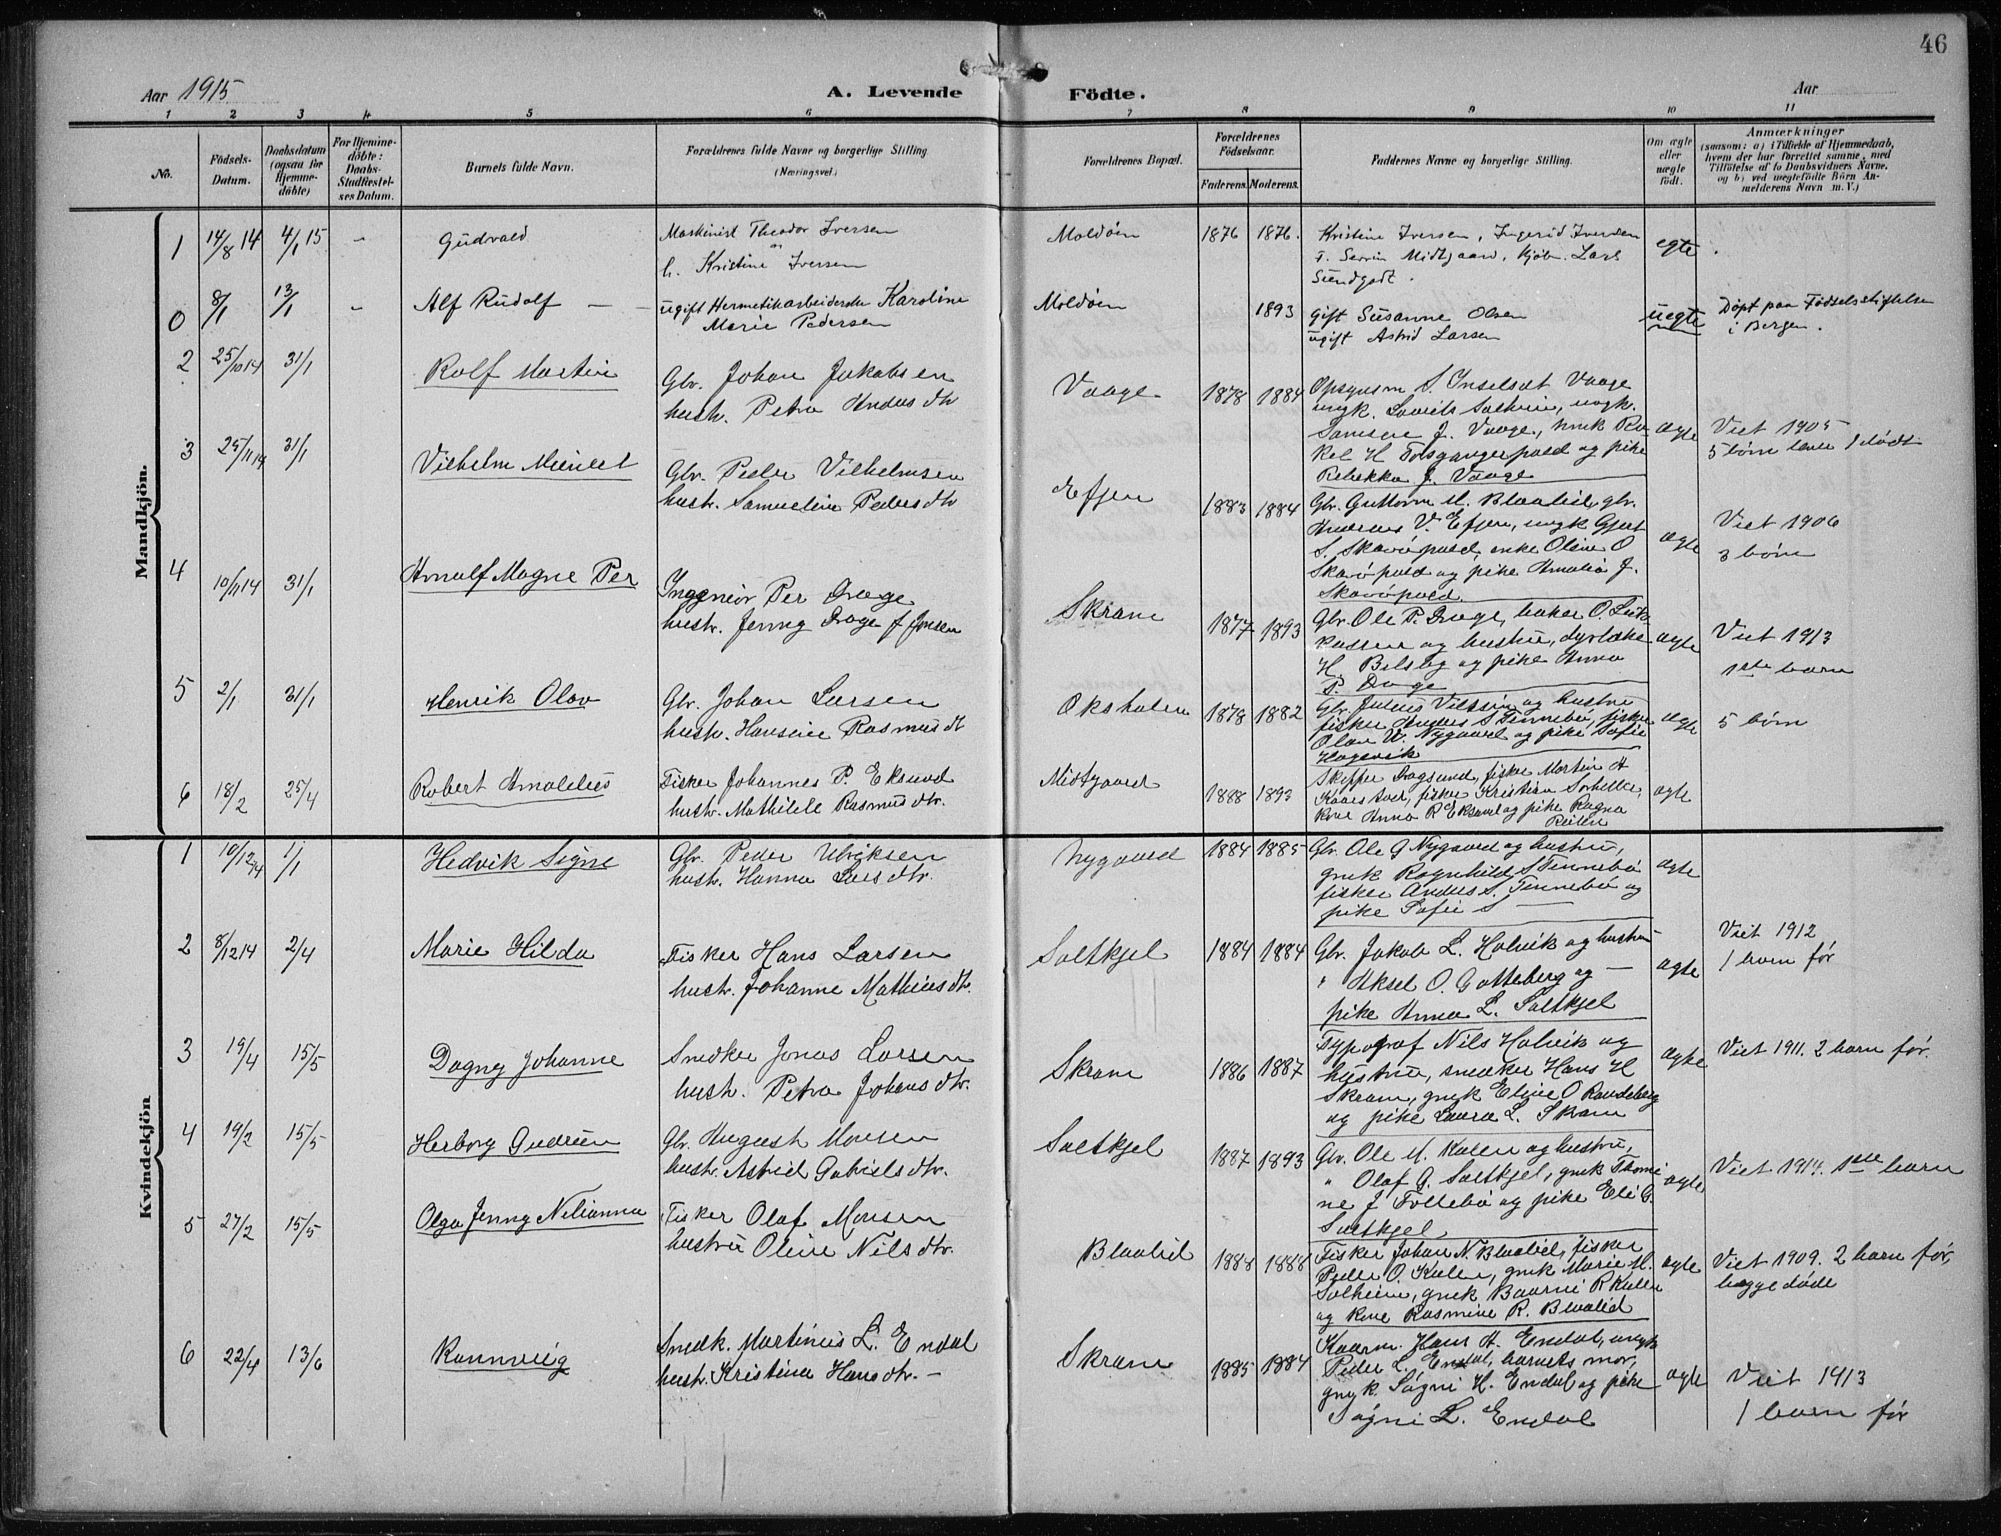 46
Aar 1915
A. Levende Födte.
Aar
1 2 3 4 5 6 7 8 9 10 11
No.
Födsels-Datum.
Daabsdatum (ogsaa for Hjemmedöbte)
For Hjemmedöbte: Daabs-Stadfestelses Datum.
Barnets fulde Navn.
Forældrenes fulde Navne og borgerlige Stilling
(Næringsvei.)
Forældrenes Bopæl.
Forældrenes Födselsaar.
Faderens. Moderens.
Faddernes Navne og borgerlige Stilling.
Om ægte eller uægte födt.
Anmærkninger
(saasom: a) i Tilfælde af Hjemmedaab, hvem der har forrettet samme, med Tilföielse af to Daabsvidners Navne, og b) ved uægtefödte Börn Anmelderens Navn m. V.)
Mandkjön.
1 14/8 14 4/1 15 - Gudvald
Maskinist Theodor Iversen
h. Kristine Iversen
Moldöen 1876 1876.
Kristine Iversen, Ingerid Iversen
Midtgaard, Lars
egte
0 8/1 13/1 - Alf Rudolf
ugift Hermetikarbeiderske Karoline
Marie Pedersen
Moldöen 1893
gift Susanne Olsen
ugift Astrid Larsen
uegte
Døpt paa Fødselsstiftelsen
i Bergen.
2 25/10 14 31/1 Rolf Martin
Gbr. Johan Jakobsen
hustr. Petra Andersdtr
Vaage 1878 1884
J. Vaage
Rebekka J. Vaage
ægte
Viet 1905
5 børn 1 dødt
3 25/11 14 31/1 Vilhelm
Gbr. Peder Vilhelmsen
hustr. Samueline Pedersdtr
Efjen 1883 1884
Gbr. Guttorm M. Blaalid, gbr.
Andreas V. Efjen, ungk Gjert
enke Oline O
og pike Amalia J.
ægte
Viet 1906
3 børn
4 10/11 14 31/1 Arnulf Magne Per
Ingeniør Per Drage
hustr. Jenny Drage f Jonsen
Skram 1877 1893
Gbr. Ole P. Drage, baker O.
og hustru, dyrlæke
og pike Anna
P. Drage
ægte
Viet 1913
1ste barn
5 2/1 31/1 Henrik Olav
Gbr. Johan Larsen
hustr. Hansine Rasmusdt
Oksholen 1878 1882
Gbr. Julius og hustru
fisker Anders S Tennebø, fisker
Nygaard og pike Sofie
Hagevik
ægte
5 børn
6 18/2 25/4 Robert Arnoldus
Fisker Johannes P. Eksund
hustr. Mathilde Rasmusdtr.
Midtgaard 1888 1893
Skipper Dragsund, fisker Martin A
fisker Kristian
kone Anna R Eksund og pike Ragna
ægte
Kvindekjön
1 10/12 14 1/1 Hedvik Signe
Gbr. Peder Ulriksen
hustr. Hanna Larsdtr.
Nygaard 1884 1885
Gbr. Ole G Nygaard og hustru,
gmk Ragnhild S Tennebø
fisker Anders S. Tennebø og
pike Sofie S —
ægte
2 8/12 14 2/4 Marie Hilda
Fisker Hans Larsen
hustr. Johanne Mathiasdtr.
Saltkjel 1884 1884
Gbr. Jakob L. Halvik og hustru
" Aksel O. Gotteberg og —
pike Anna L. Saltkjel
ægte
Viet 1912
1 barn før
3 19/4 15/5 Dagny Johanne
Snedker Jonas Larsen
hustr. Petra Johansdtr.
Skram 1886 1887
Typograf Nils Halvik og
hustru, snedker Hans H
Skram, gmk Eline O Raudeberg
og pike Laura L. Skram
ægte
Viet 1911. 2 barn før.
4 19/2 15/5 Herborg Gudrun
Gbr. August Monsen
hustr. Astrid Gabrielsdtr.
Saltkjel 1887 1893
Gbr. Ole M. Kulen og hustru,
" Olaf G. Saltkjel, gmk Thomi
ne J Tollebø og pike Eli G.
Saltkjel
ægte
Viet 1914. 1ste barn
5 27/2 15/5 Olga Jenny Nilianna
Fisker Olaf Monsen
hustru Oline Nilsdtr.
Blaalid 1888 1888
Fisker Johan N. Blaalid, fisker
Peder O. Kulen, gmk Marie M.
Solheim, gmk R Kulen
og kone Rasmine R. Blaalid
ægte
Viet 1909. 2 barn før,
begge døde
6 22/4 13/6 Rannveig
Snedk. Martinus L. Endal
hustr. Kristina Hansdtr. —
Skram 1885 1884
Kaarm. Hans A. Endal, ungk
Peder L. Endal, barnets mor,
gmk. Søgni H. Endal og pike
Søgni L. Endal
ægte
Viet 1913
1 barn før